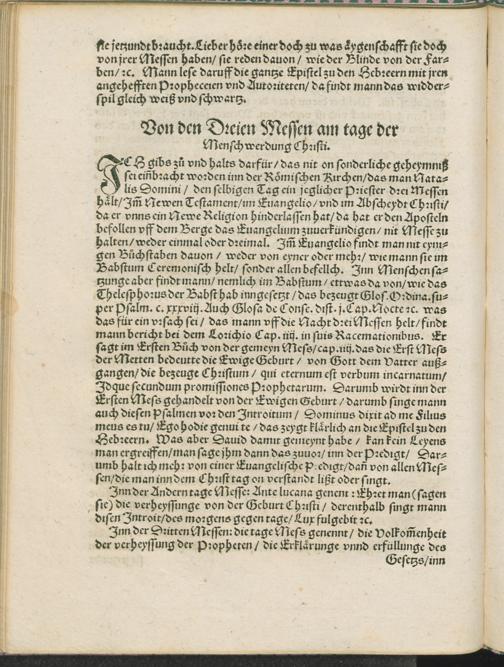 sie jetzundt braucht. Lieber höre einer doch zu was äygenschafft sie doch
von jrer Messen haben/ sie reden dauon/ wie der Blinde von der Far-
ben/ ꝛc. Mann lese daruff die gantze Epistel zu den Hebreern mit jren
angehefften Propheceien vnd Autoriteten/ da findt man das widder-
spil gleich weiß vnd schwartz.
Von den Dreien Messen am tage der
Menschwerdung Christi.
JCH gibs zů vnd halts darfür/ das nit on sonderliche geheymniß
sei einbracht worden inn der Römischen Kirchen/ das man Nata-
lis Domini/ den selbigen Tag ein jeglicher Priester drei Messen
hält/ Jm̃ Newen Testament/ im Euangelio/ vnd im Abscheydt Christi/
da er vnns ein Newe Religion hinderlassen hat/ da hat er den Aposteln
befollen vff dem Berge das Euangelium zuuerkündigen/ nit Messe zu
halten/ weder einmal oder dreimal. Jm̃ Euangelio findt man nit eyni-
gen Bůchstaben dauon/ weder von eyner oder mehr/ wie mann sie im
Babstum Ceremonisch helt/ sonder allen befellch. Jnn Menschen sa-
tzunge aber findt mann/ nemlich im Babstum/ ettwas da von/ wie das
Thelesphorus der Babst hab inngesetzt/ das bezeugt Glos. Ordina. su-
per Psalm. c. xxxviij. Auch Glosa de Conse. dist. j. Cap. Nocte ꝛc. was
das für ein vrsach sei/ das mann vff die Nacht drei Messen helt/ findt
mann bericht bei dem Lorichio Cap. iiij. in suis Racemationibus. Er
sagt im Ersten Bůch von der gemeyn Mess/ cap. iiij. das die Erst Mess
der Metten bedeutte die Ewige Geburt/ von Gott dem Vatter auß-
gangen/ die bezeuge Christum/ qui eternum est verbum incarnatum/
Idque secundum promissiones Prophetarum. Darumb wirdt inn der
Ersten Mess gehandelt von der Ewigen Geburt/ darumb singe mann
auch diesen Psalmen vor den Introitum/ Dominus dixit ad me Filius
meus es tu/ Ego hodie genui te/ das zeygt klärlich an die Epistel zu den
Hebreern. Was aber Dauid damit gemeynt habe/ kan kein Leyens
man ergreiffen/ man sage jhm dann das zuuor/ inn der Predigt/ Dar-
umb halt ich mehr von einer Euangelische Predigt/ dañ von allen Mes-
sen/ die man inn dem Christ tag on verstandt lißt oder singt.
Jnn der Andern tage Messe: Ante lucana genent: Ehret man (sagen
sie) die verheyssunge von der Geburt Christi/ derenthalb singt mann
disen Introit/ des morgens gegen tage/ Lux fulgebit ꝛc.
Jnn der Dritten Messen: die tage Mess genennt/ die Volkom̃enheit
der verheyssung der Propheten/ die Erklärunge vnnd erfüllunge des
Gesetzs/ inn